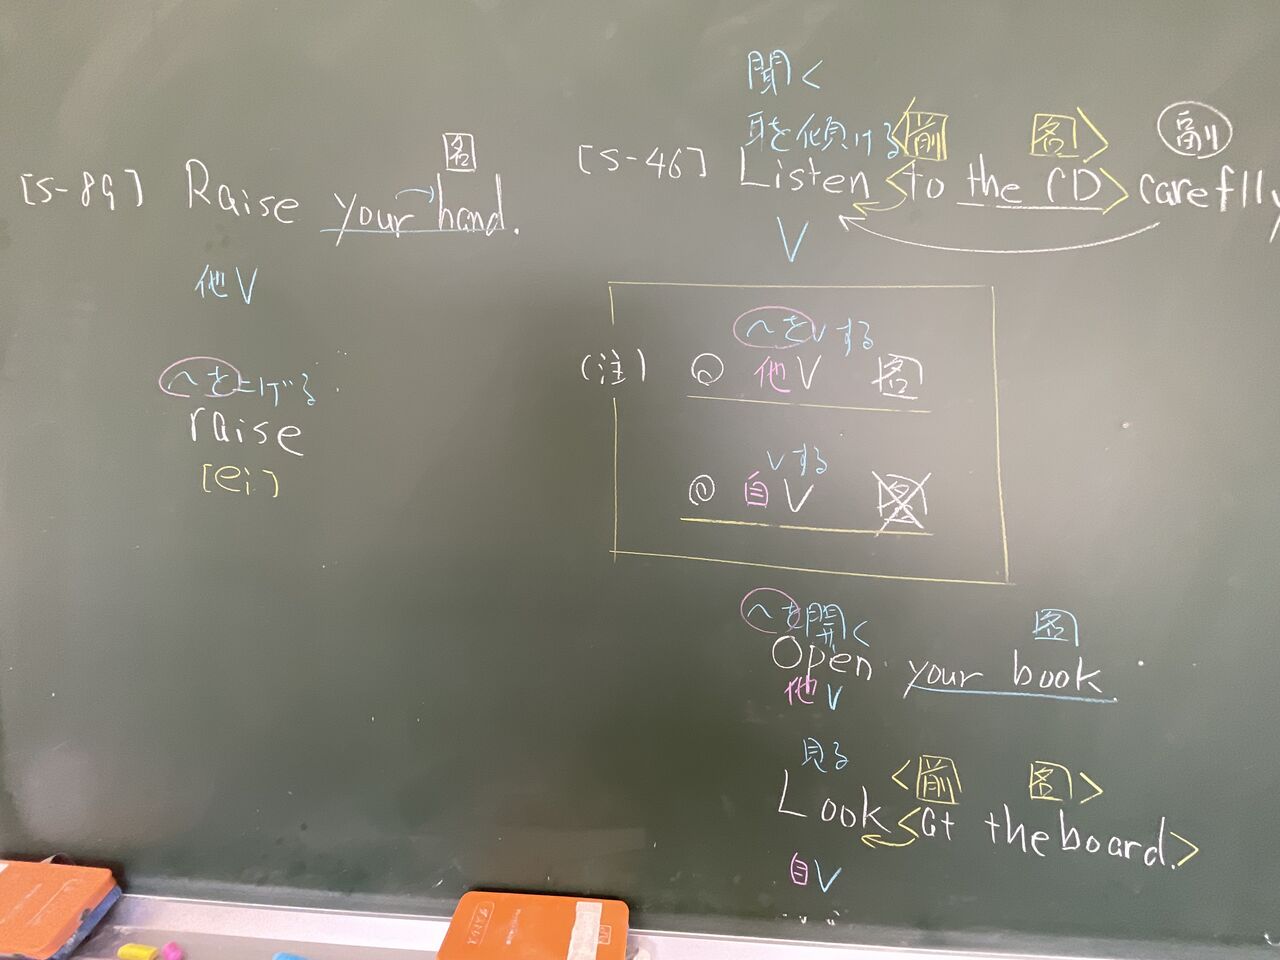 名
[S-89] Raise your hand.
他V
〜を上げる
raise
[ei]
聞く
耳を傾ける <前 名> 副
[S-46] Listen <to the CD> careflly
V
〜をVする
(注) 他V 名
Vする
自V 名
〜を開く 名
Open your book
他V
見る <前 名>
Look <at the board.>
自V